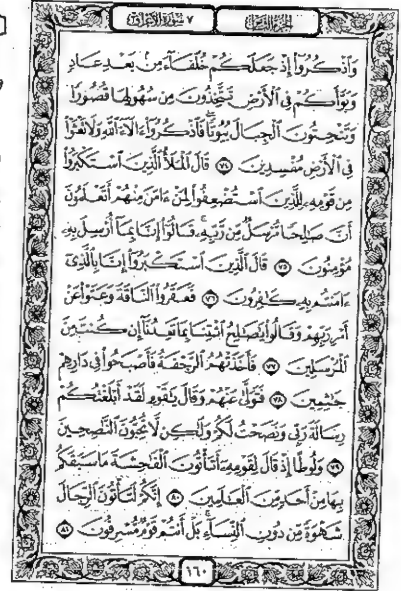 الجزء الثامن
٧ سورة الأعراف
وَٱذۡكُرُوٓاْ إِذۡ جَعَلَكُمۡ خُلَفَآءَ مِنۢ بَعۡدِ عَادٖ
وَبَوَّأَكُمۡ فِي ٱلۡأَرۡضِ تَتَّخِذُونَ مِن سُهُولِهَا قُصُورٗا
وَتَنۡحِتُونَ ٱلۡجِبَالَ بُيُوتٗاۖ فَٱذۡكُرُوٓاْ ءَالَآءَ ٱللَّهِ وَلَا تَعۡثَوۡاْ
فِي ٱلۡأَرۡضِ مُفۡسِدِينَ ٧٤ قَالَ ٱلۡمَلَأُ ٱلَّذِينَ ٱسۡتَكۡبَرُواْ
مِن قَوۡمِهِۦ لِلَّذِينَ ٱسۡتُضۡعِفُواْ لِمَنۡ ءَامَنَ مِنۡهُمۡ أَتَعۡلَمُونَ
أَنَّ صَٰلِحٗا مُّرۡسَلٞ مِّن رَّبِّهِۦۚ قَالُوٓاْ إِنَّا بِمَآ أُرۡسِلَ بِهِۦ
مُؤۡمِنُونَ ٧٥ قَالَ ٱلَّذِينَ ٱسۡتَكۡبَرُوٓاْ إِنَّا بِٱلَّذِيٓ
ءَامَنتُم بِهِۦ كَٰفِرُونَ ٧٦ فَعَقَرُواْ ٱلنَّاقَةَ وَعَتَوۡاْ عَنۡ
أَمۡرِ رَبِّهِمۡ وَقَالُواْ يَٰصَٰلِحُ ٱئۡتِنَا بِمَا تَعِدُنَآ إِن كُنتَ مِنَ
ٱلۡمُرۡسَلِينَ ٧٧ فَأَخَذَتۡهُمُ ٱلرَّجۡفَةُ فَأَصۡبَحُواْ فِي دَارِهِمۡ
جَٰثِمِينَ ٧٨ فَتَوَلَّىٰ عَنۡهُمۡ وَقَالَ يَٰقَوۡمِ لَقَدۡ أَبۡلَغۡتُكُمۡ
رِسَالَةَ رَبِّي وَنَصَحۡتُ لَكُمۡ وَلَٰكِن لَّا تُحِبُّونَ ٱلنَّٰصِحِينَ
٧٩ وَلُوطًا إِذۡ قَالَ لِقَوۡمِهِۦٓ أَتَأۡتُونَ ٱلۡفَٰحِشَةَ مَا سَبَقَكُم
بِهَا مِنۡ أَحَدٖ مِّنَ ٱلۡعَٰلَمِينَ ٨٠ إِنَّكُمۡ لَتَأۡتُونَ ٱلرِّجَالَ
شَهۡوَةٗ مِّن دُونِ ٱلنِّسَآءِۚ بَلۡ أَنتُمۡ قَوۡمٞ مُّسۡرِفُونَ ٨١
١٦٠